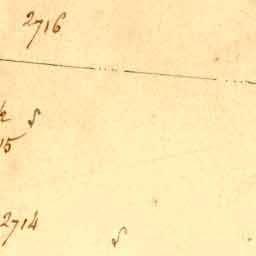 2716
k S
15
2714
S